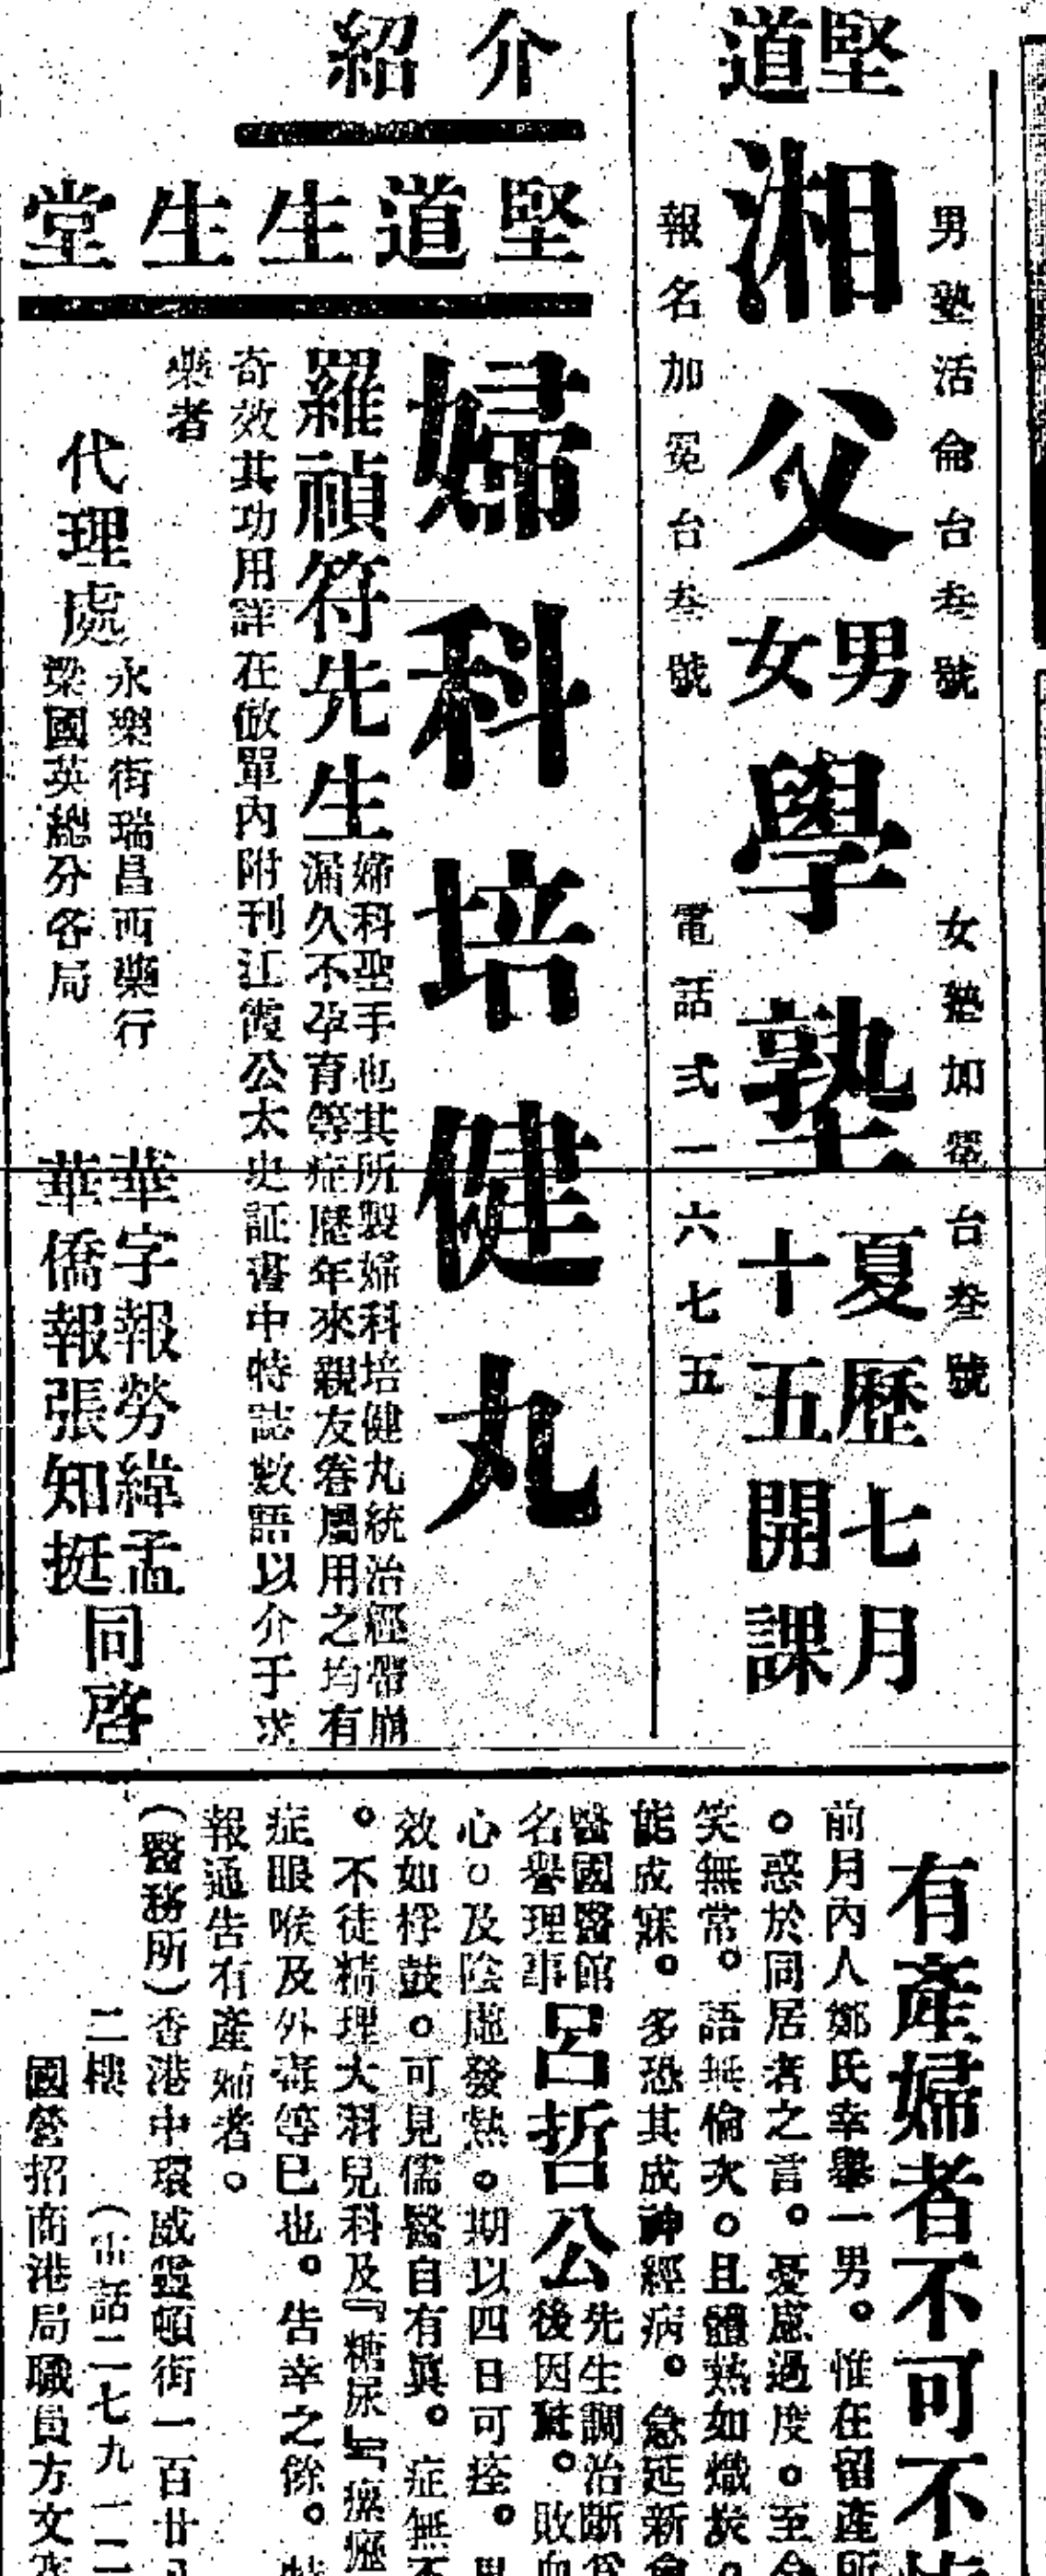 堅道
湘父男女學塾
夏歷七月十五開課
男塾活侖台叁號
女塾加冕台叁號
報名加冕台叁號
電話弍一六七五
介紹
堅道生生堂
婦科培健丸
羅禎符先生
婦科聖手也其所製婦科培健丸統治經帶崩
漏久不孕育等症歷年來親友眷屬用之均有
奇效其功用詳在倣單內附刊江霞公太史証書中特誌數語以介于求
藥者
代理處
永樂街瑞昌西藥行
梁國英總分各局
華字報勞緯孟
華僑報張知挺
同啓
有產婦者不可不
前月內人鄭氏幸舉一男。惟在留產所
。惑於同居者之言。憂慮過度。至
笑無常。語無倫次。且體熱如熾炭。
能成寐。多恐其成神經病。急延新會
醫國醫館
名譽理事
呂哲公
先生調治斷為
後因驚。敗血
心。及陰虛發熱。期以四日可痊。
效如桴鼓。可見儒醫自有眞。症無不
。不徒精理大科兒科及『糖尿』
症眼喉及外毒等已也。告幸之餘。特
報通告有產婦者。
(醫務所)香港中環威靈頓街一百廿
二樓
(電話二七九一二
國營招商港局職員方文